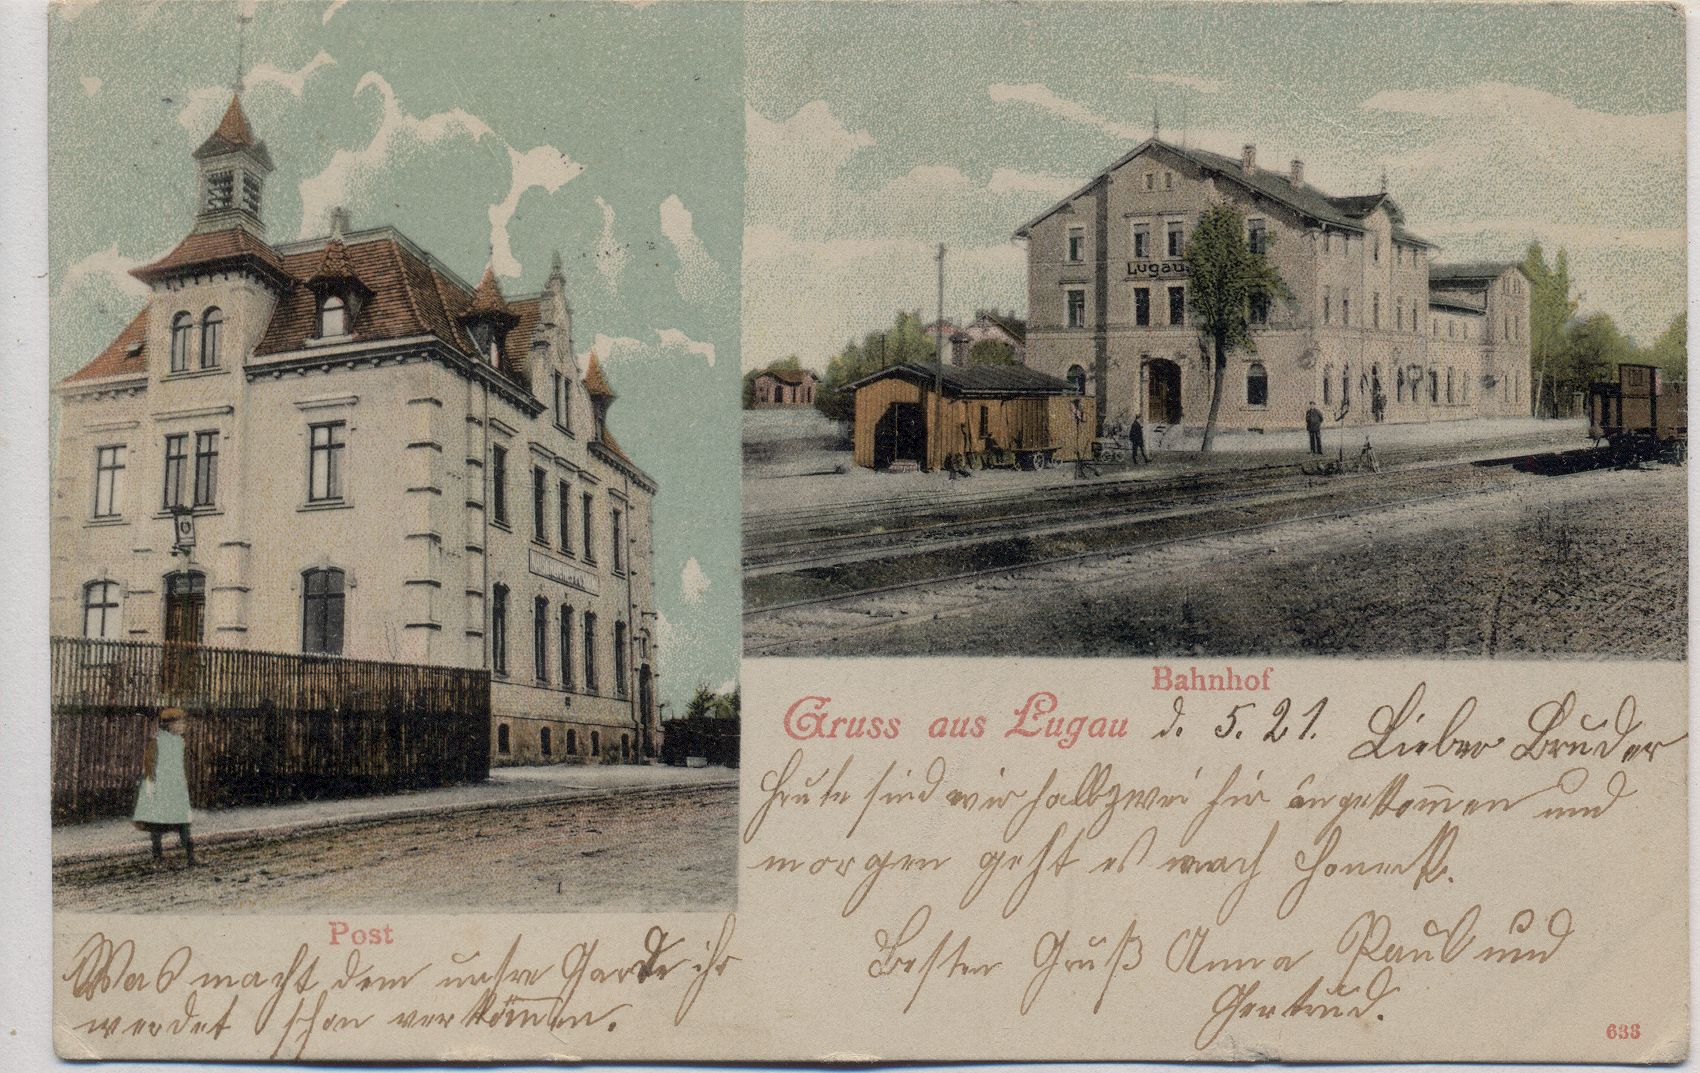 Lugau
Bahnhof
Gruss aus Lugau d. 5. 21. Lieber Bruder
heute sind wir halbzwei hir angekommen und
morgen geht es nach
Besten Gruß Anna Paul und
Gertrud.
Post
Was macht denn unsre Garde ihr
werdet schon verkommen.
638